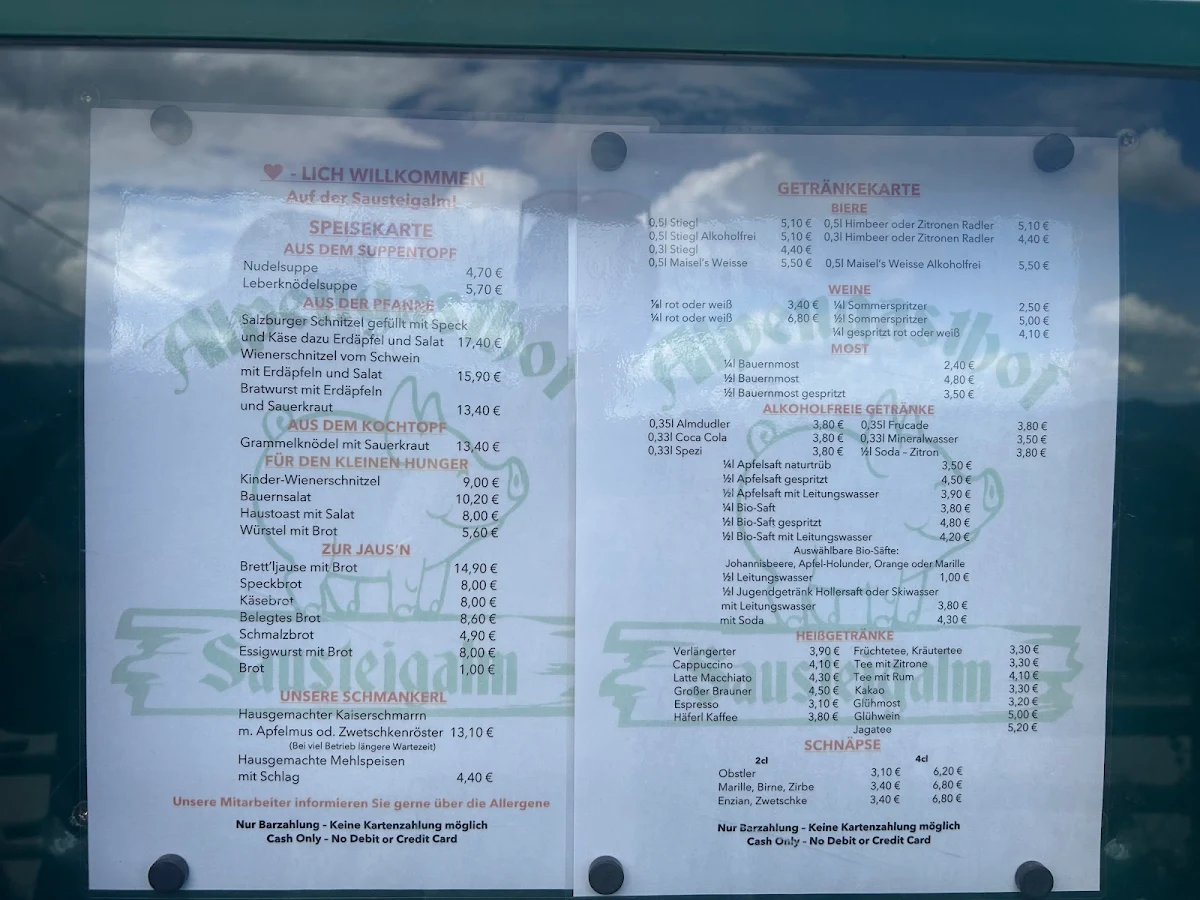 ❤ - LICH WILLKOMMEN
Auf der Sausteigalm!
SPEISEKARTE
AUS DEM SUPPENTOPF
Nudelsuppe 4,70 €
Leberknödelsuppe 5,70 €
AUS DER PFANNE
Salzburger Schnitzel gefüllt mit Speck
und Käse dazu Erdäpfel und Salat 17,40 €
Wienerschnitzel vom Schwein
mit Erdäpfeln und Salat 15,90 €
Bratwurst mit Erdäpfeln
und Sauerkraut 13,40 €
AUS DEM KOCHTOPF
Grammelknödel mit Sauerkraut 13,40 €
FÜR DEN KLEINEN HUNGER
Kinder-Wienerschnitzel 9,00 €
Bauernsalat 10,20 €
Haustoast mit Salat 8,00 €
Würstel mit Brot 5,60 €
ZUR JAUS'N
Brett'ljause mit Brot 14,90 €
Speckbrot 8,00 €
Käsebrot 8,00 €
Belegtes Brot 8,60 €
Schmalzbrot 4,90 €
Essigwurst mit Brot 8,00 €
Brot 1,00 €
UNSERE SCHMANKERL
Hausgemachter Kaiserschmarrn
m. Apfelmus od. Zwetschkenröster 13,10 €
(Bei viel Betrieb längere Wartezeit)
Hausgemachte Mehlspeisen
mit Schlag 4,40 €
Unsere Mitarbeiter informieren Sie gerne über die Allergene
Nur Barzahlung – Keine Kartenzahlung möglich
Cash Only – No Debit or Credit Card
Alpengasthof
Sausteigalm
GETRÄNKEKARTE
BIERE
0,5l Stiegl 5,10 € 0,5l Himbeer oder Zitronen Radler 5,10 €
0,5l Stiegl Alkoholfrei 5,10 € 0,3l Himbeer oder Zitronen Radler 4,40 €
0,3l Stiegl 4,40 €
0,5l Maisel's Weisse 5,50 € 0,5l Maisel's Weisse Alkoholfrei 5,50 €
WEINE
⅛l rot oder weiß 3,40 € ¼l Sommerspritzer 2,50 €
¼l rot oder weiß 6,80 € ½l Sommerspritzer 5,00 €
¼l gespritzt rot oder weiß 4,10 €
MOST
¼l Bauernmost 2,40 €
½l Bauernmost 4,80 €
½l Bauernmost gespritzt 3,50 €
ALKOHOLFREIE GETRÄNKE
0,35l Almdudler 3,80 € 0,35l Frucade 3,80 €
0,33l Coca Cola 3,80 € 0,33l Mineralwasser 3,50 €
0,33l Spezi 3,80 € ½l Soda – Zitron 3,80 €
¼l Apfelsaft naturtrüb 3,50 €
½l Apfelsaft gespritzt 4,50 €
½l Apfelsaft mit Leitungswasser 3,90 €
¼l Bio-Saft 3,80 €
½l Bio-Saft gespritzt 4,80 €
½l Bio-Saft mit Leitungswasser 4,20 €
Auswählbare Bio-Säfte:
Johannisbeere, Apfel-Holunder, Orange oder Marille
½l Leitungswasser 1,00 €
½l Jugendgetränk Hollersaft oder Skiwasser
mit Leitungswasser 3,80 €
mit Soda 4,30 €
HEIßGETRÄNKE
Verlängerter 3,90 € Früchtetee, Kräutertee 3,30 €
Cappuccino 4,10 € Tee mit Zitrone 3,30 €
Latte Macchiato 4,30 € Tee mit Rum 4,10 €
Großer Brauner 4,50 € Kakao 3,30 €
Espresso 3,10 € Glühmost 3,20 €
Häferl Kaffee 3,80 € Glühwein 5,00 €
Jagatee 5,20 €
SCHNÄPSE
2cl 4cl
Obstler 3,10 € 6,20 €
Marille, Birne, Zirbe 3,40 € 6,80 €
Enzian, Zwetschke 3,40 € 6,80 €
Nur Barzahlung – Keine Kartenzahlung möglich
Cash Only – No Debit or Credit Card
Alpengasthof
Sausteigalm